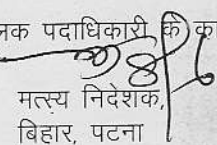 पदाधिकारी के
मत्स्य निदेशक,
बिहार, पटना